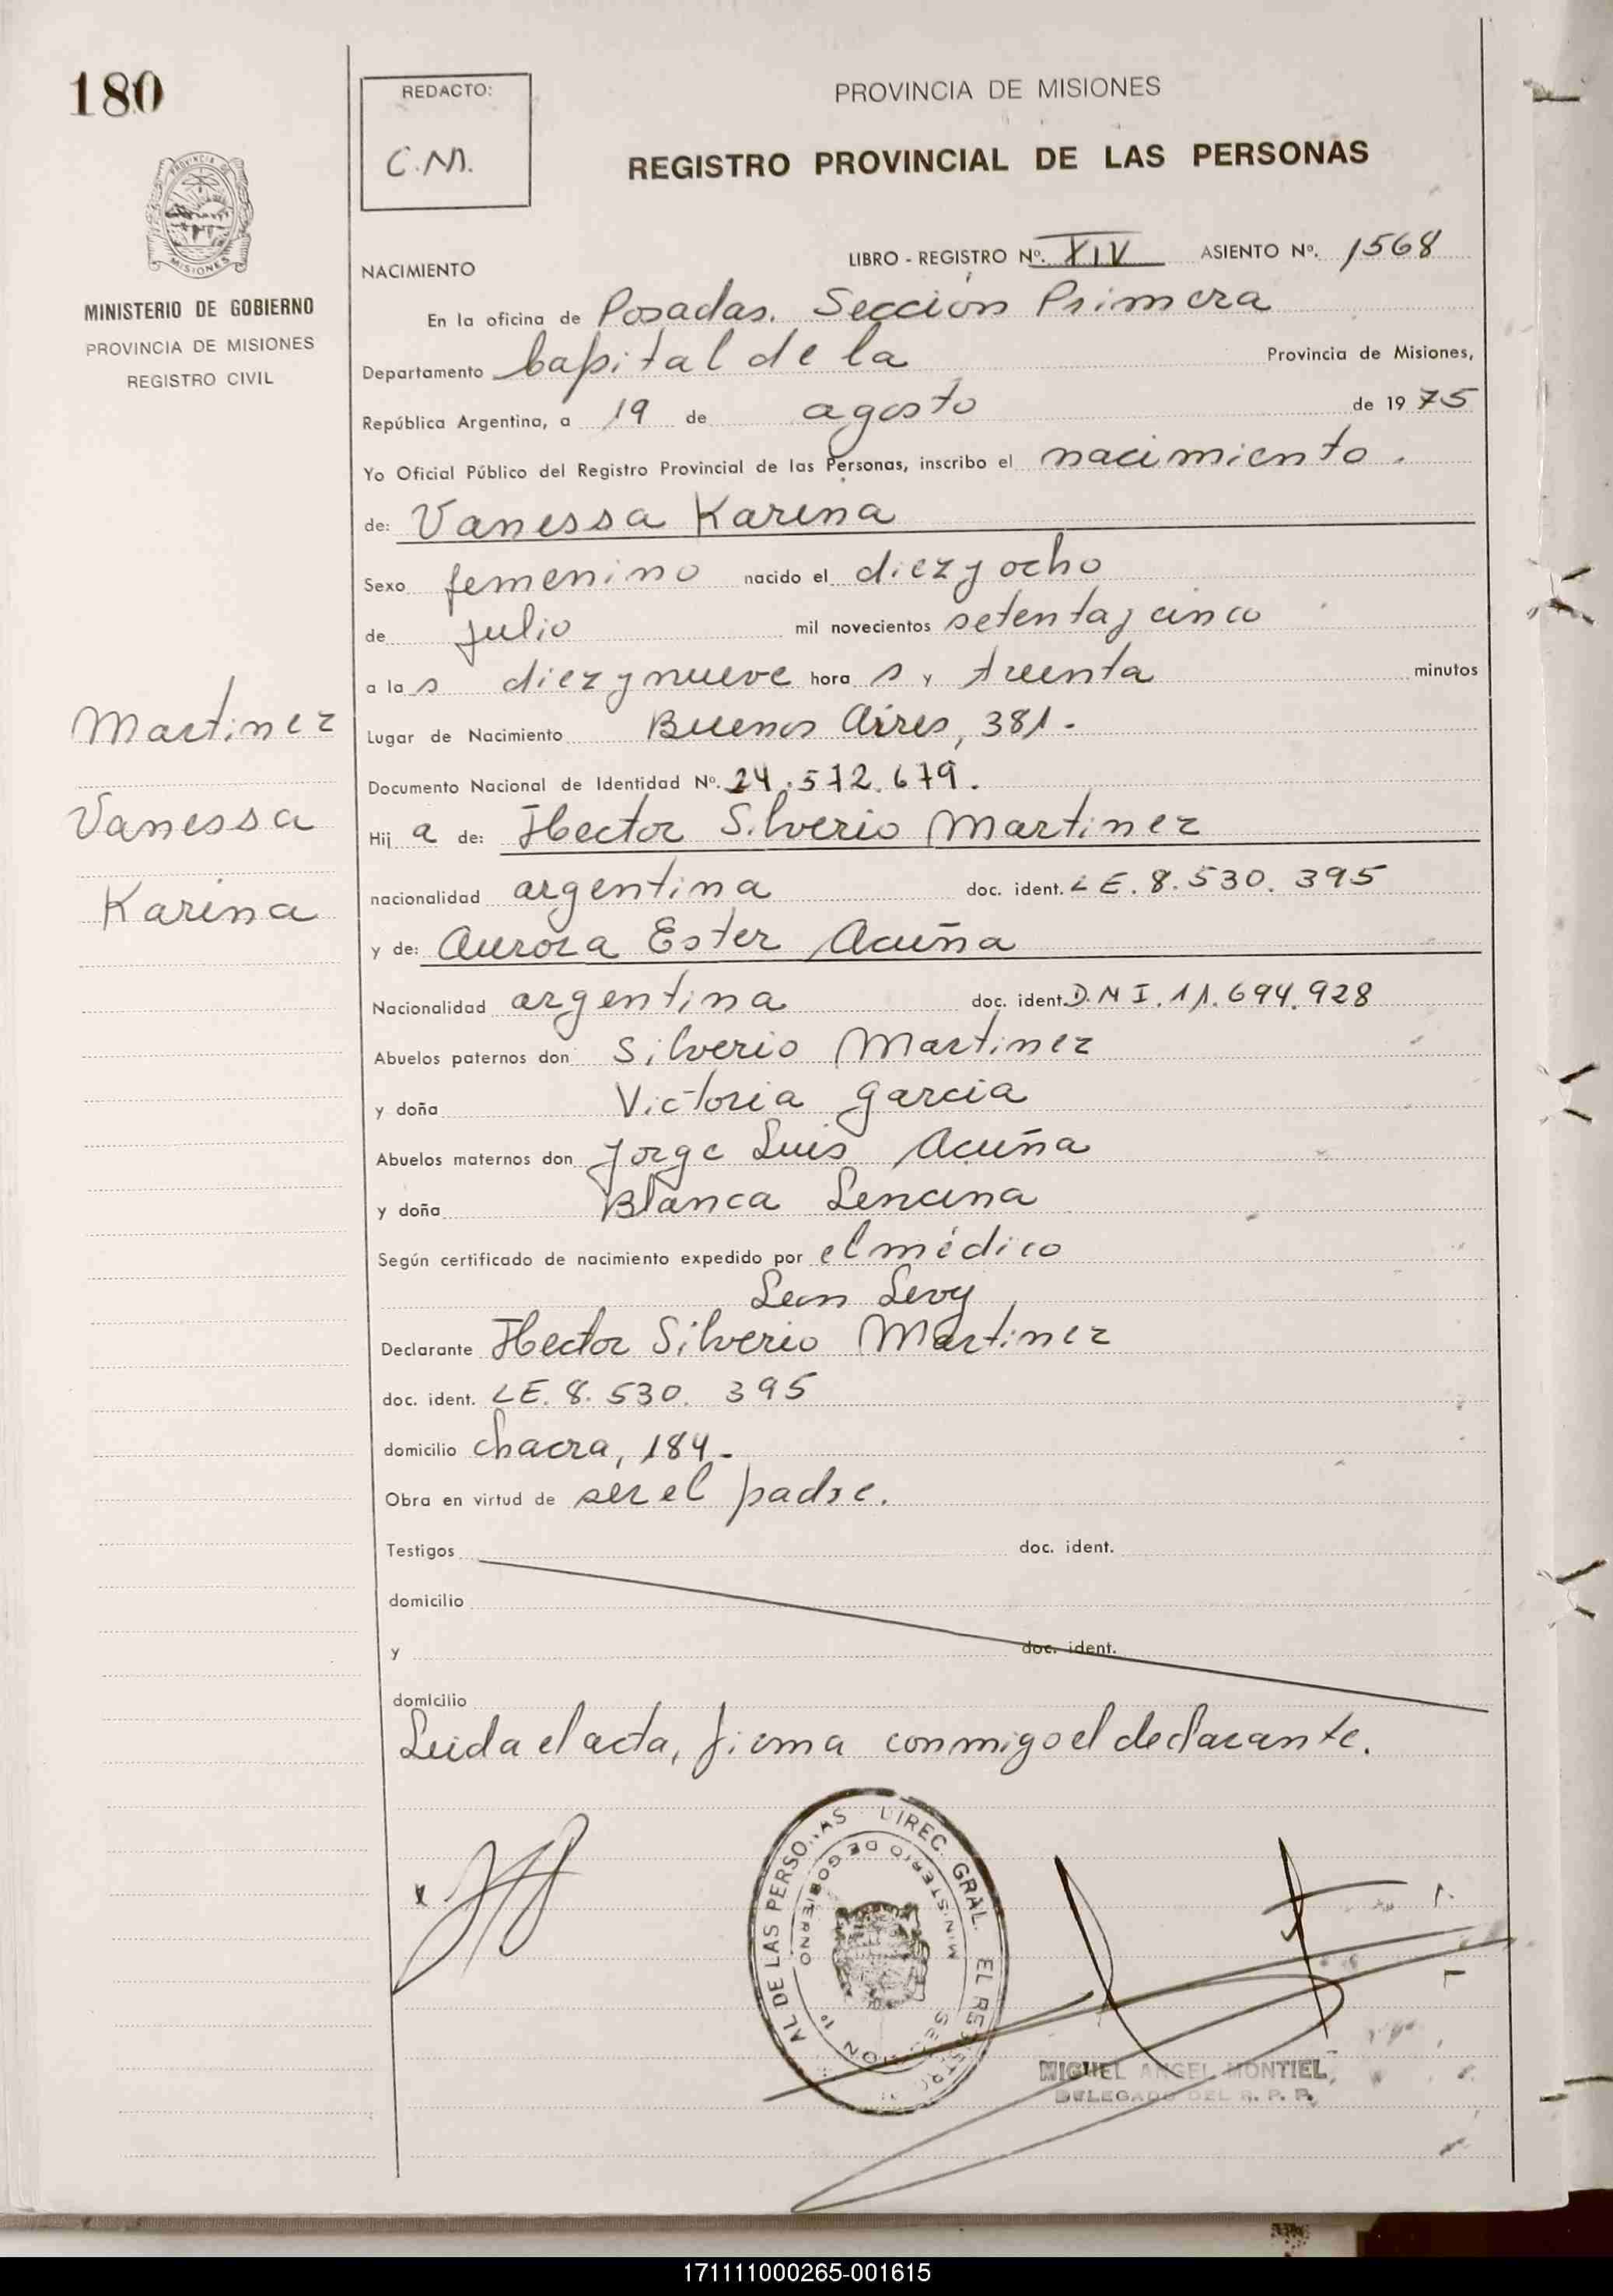 180
REDACTO:
C.M.
PROVINCIA DE MISIONES
REGISTRO PROVINCIAL DE LAS PERSONAS
MISIONES
MINISTERIO DE GOBIERNO
PROVINCIA DE MISIONES
REGISTRO CIVIL
LIBRO - REGISTRO Nº. XIV ASIENTO Nº. 1568
NACIMIENTO
En la oficina de Posadas. Sección Primera
Departamento Capital de la Provincia de Misiones,
República Argentina, a 19 de agosto de 1975
Yo Oficial Público del Registro Provincial de las Personas, inscribo el nacimiento.
de: Vanessa Karina
Sexo femenino nacido el diez y ocho
de julio mil novecientos setenta y cinco
a las diez y nueve horas y treinta minutos
Lugar de Nacimiento Buenos Aires, 381.
Documento Nacional de Identidad Nº. 24.572.679.
Martinez
Vanessa
Karina
Hija de: Hector Silverio Martinez
nacionalidad argentina doc. ident. LE. 8.530.395
y de: Aurora Ester Acuña
Nacionalidad argentina doc. ident. D.N I. 11.694.928
Abuelos paternos don Silverio Martinez
y doña Victoria Garcia
Abuelos maternos don Jorge Luis Acuña
y doña Blanca Lencina
Según certificado de nacimiento expedido por el médico
Leon Levy
Declarante Hector Silverio Martinez
doc. ident. LE. 8.530.395
domicilio chacra, 184.
Obra en virtud de ser el padre.
Testigos doc. ident.
domicilio
y doc. ident.
domicilio
Leida el acta, firma conmigo el declarante.
DIREC. GRAL. EL REGISTRO AL DE LAS PERSONAS
MINISTERIO DE GOBIERNO
SECCION 1º
MIGUEL ANGEL MONTIEL
DELEGADO DEL R. P. P.
171111000265-001615